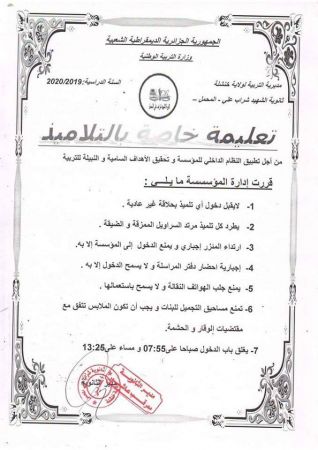 الجمهورية الجزائرية الديمقراطية الشعبية
وزارة التربية الوطنية
مديرية التربية لولاية خنشلة
السنة الدراسية: 2020/2019
ثانوية الشهيد شراب علي - المحمل -
تعليمة خاصة بالتلاميذ
من أجل تطبيق النظام الداخلي للمؤسسة و تحقيق الأهداف السامية و النبيلة للتربية
قررت إدارة المؤسسة ما يلـــي :
1- لايقبل دخول أي تلميذ بحلاقة غير عادية .
2- يطرد كل تلميذ مرتد السراويل الممزقة و الضيقة .
3- ارتداء المئزر إجباري و يمنع الدخول إلى المؤسسة إلا به .
4- إجبارية احضار دفتر المراسلة و لا يسمح الدخول إلا به .
5- يمنع جلب الهواتف النقالة و لا يسمح باستعمالها .
6- تمنع مساحيق التجميل للبنات و يجب أن تكون الملابس تتفق مع
مقتضيات الوقار و الحشمة.
7- يغلق باب الدخول صباحا على 07:55 و مساء على 13:25
مدير الثانوية